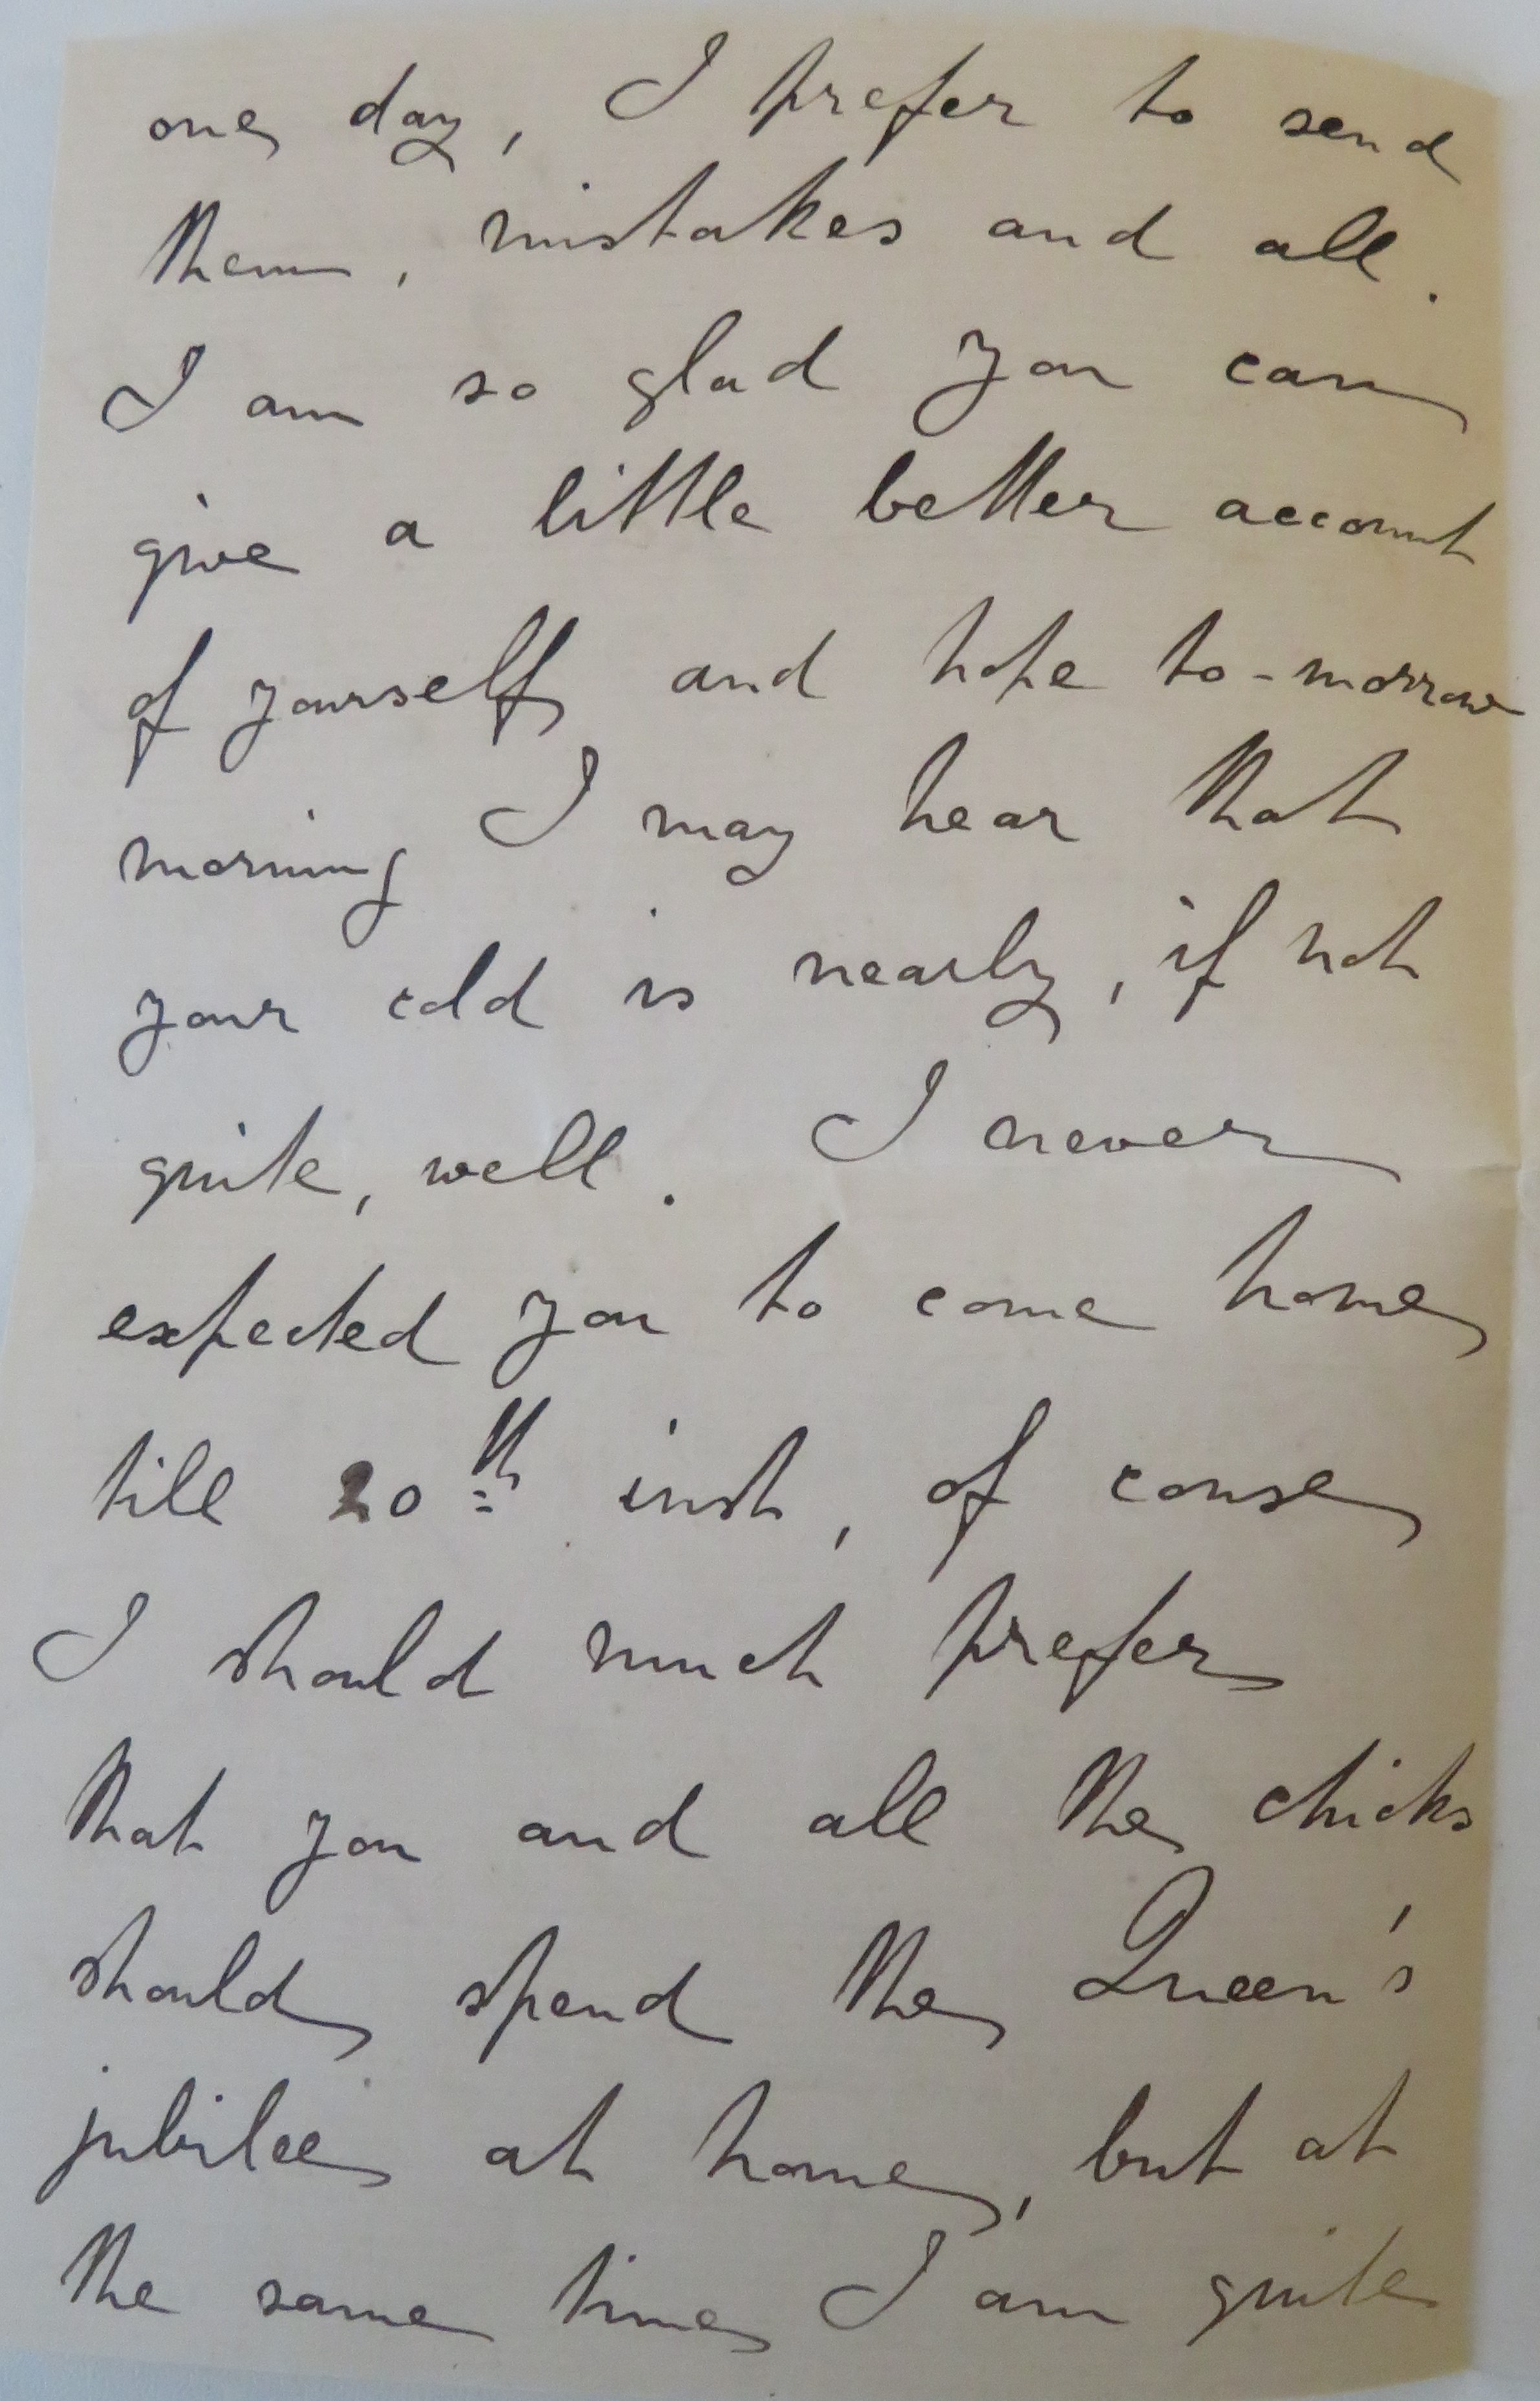 one day, I prefer to send
them, mistakes and all.
I am so glad you can
give a little better account
of yourself and hope to-morrow
morning I may hear that
your cold is nearly, if not
quite, well. I never
expected you to come home
till 20th inst, of course
I should much prefer
that you and all the chicks
should spend the Queen's
jubilee at home, but at
the same time I am quite